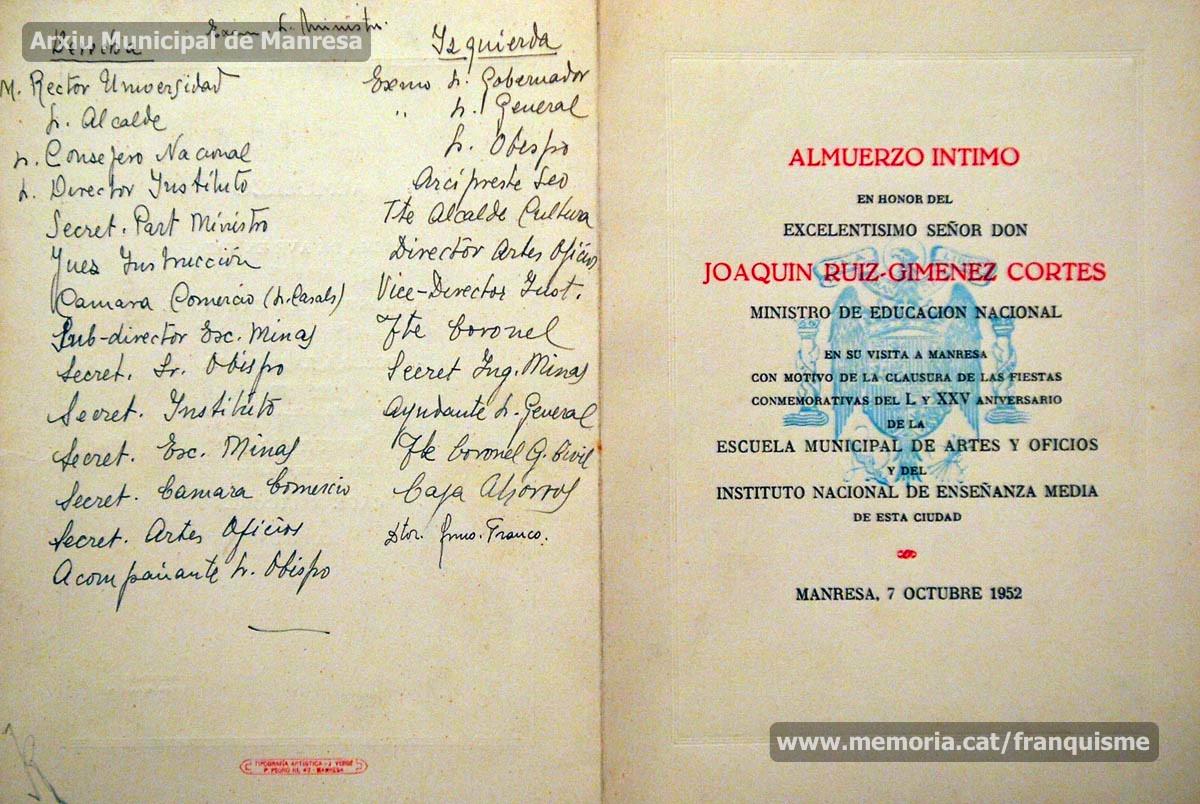 Arxiu Municipal de Manresa
Exmo Sr. Ministro.
Derecha
M. Rector Universidad
Sr. Alcalde
Sr. Consejero Nacional
Sr. Director Instituto
Secret. Part Ministro
Juez Instrucción
Camara Comercio (Sr. Casals)
Sub-director Esc. Minas
Secret. Sr. Obispo
Secret. Instituto
Secret. Esc. Minas
Secret. Camara Comercio
Secret. Artes Oficios
Acompañante Sr. Obispo
Izquierda
Exmo Sr. Gobernador
" Sr. General
Sr. Obispo
Arcipreste Seo
Tte Alcalde Cultura
Director Artes Oficios
Vice-Director Inst.
Tte Coronel
Secret Ing. Minas
Ayudante Sr. General
Tte Coronel G. Civil
Caja Ahorros
Dtor. Grno. Franco.
TIPOGRAFÍA ARTÍSTICA - J. VERGÉ
P. PEDRO III, 47 - MANRESA
ALMUERZO INTIMO
EN HONOR DEL
EXCELENTISIMO SEÑOR DON
JOAQUIN RUIZ-GIMENEZ CORTES
MINISTRO DE EDUCACION NACIONAL
EN SU VISITA A MANRESA
CON MOTIVO DE LA CLAUSURA DE LAS FIESTAS
CONMEMORATIVAS DEL L Y XXV ANIVERSARIO
DE LA
ESCUELA MUNICIPAL DE ARTES Y OFICIOS
Y DEL
INSTITUTO NACIONAL DE ENSEÑANZA MEDIA
DE ESTA CIUDAD
MANRESA, 7 OCTUBRE 1952
www.memoria.cat/franquisme